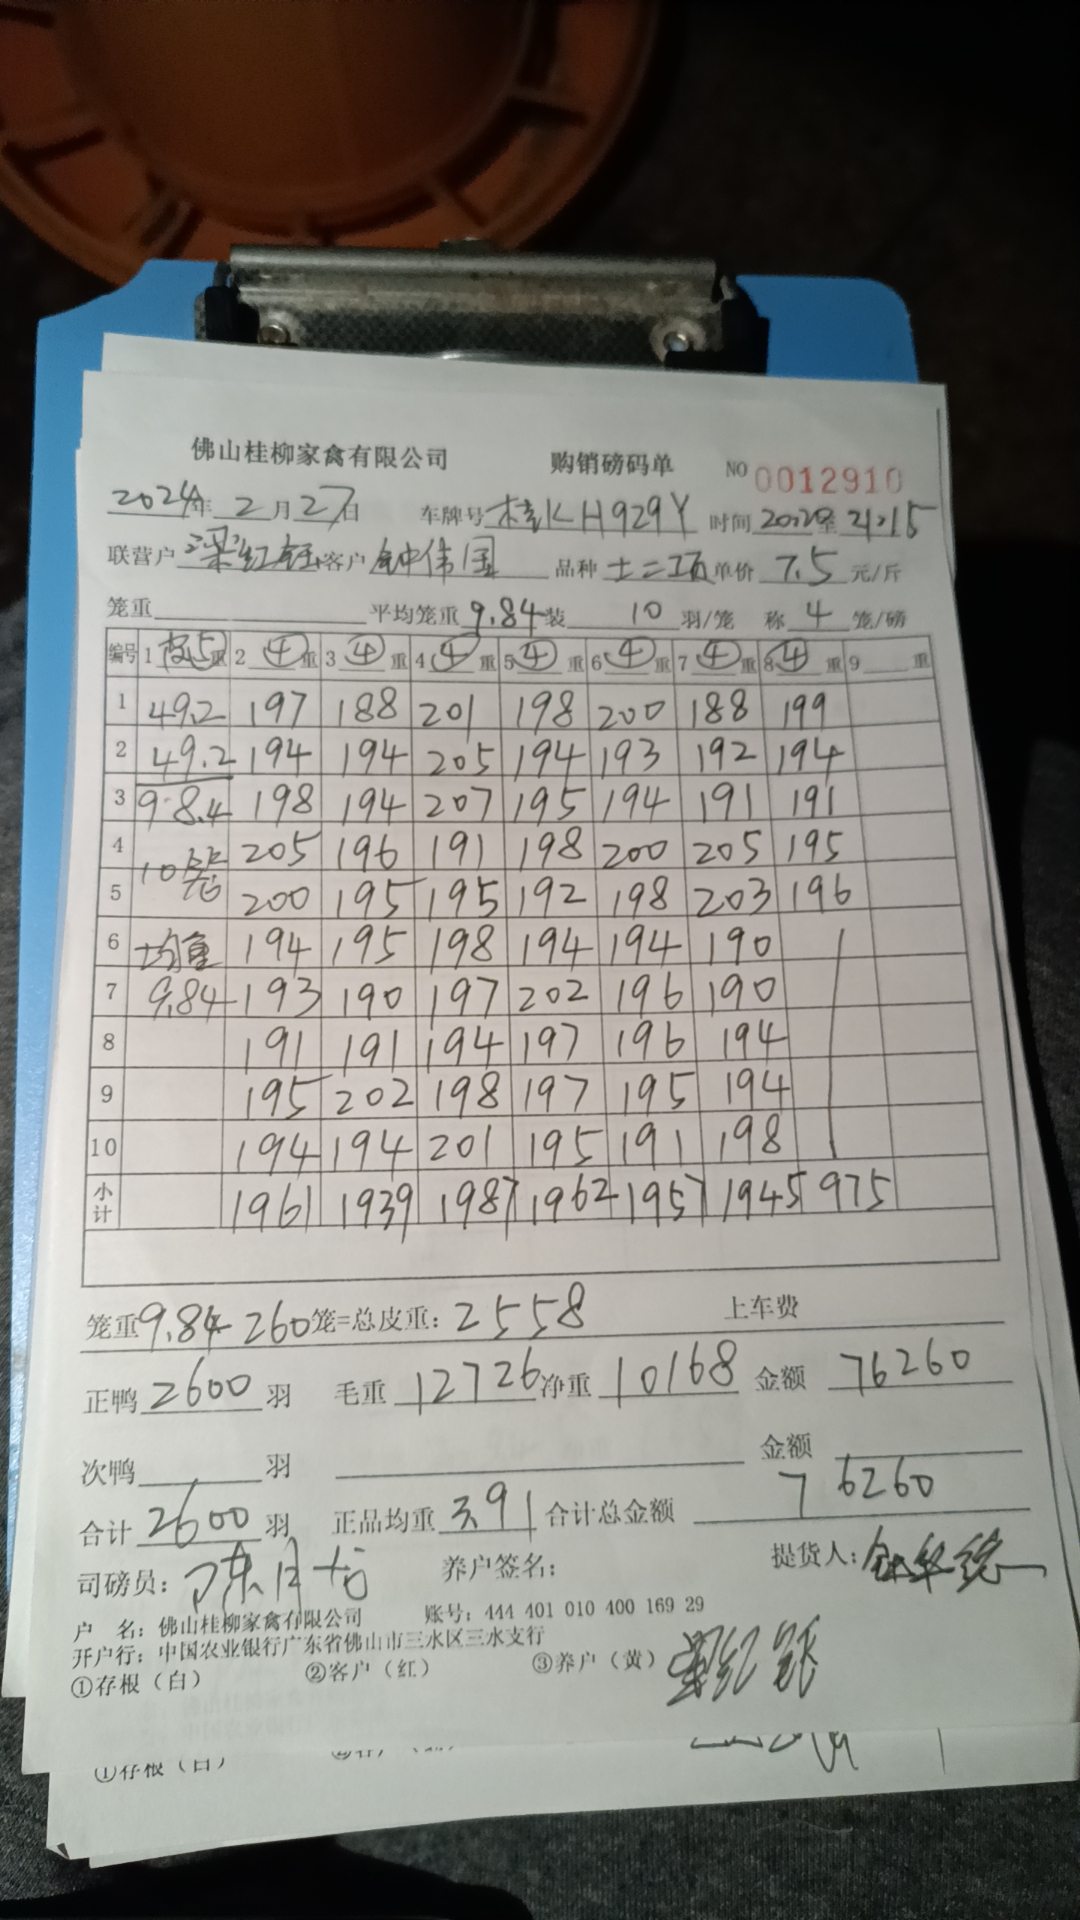 佛山桂柳家禽有限公司 购销磅码单 NO 0012910
2024年 2 月 27日 车牌号 桂KH929Y 时间 20:20至 21:15
联营户 梁红钰 客户 钟伟国 品种 土二项 单价 7.5 元/斤
笼重 平均笼重 9.84 装 10 羽/笼 称 4 笼/磅
编号 1 皮5 重 2 ④ 重 3 ④ 重 4 ④ 重 5 ④ 重 6 ④ 重 7 ④ 重 8 ④ 重 9 重
1 49.2 197 188 201 198 200 188 199
2 49.2 194 194 205 194 193 192 194
3 98.4 198 194 207 195 194 191 191
4 10笼 205 196 191 198 200 205 195
5 200 195 195 192 198 203 196
6 均重 194 195 198 194 194 190
7 9.84 193 190 197 202 196 190
8 191 191 194 197 196 194
9 195 202 198 197 195 194
10 194 194 201 195 191 198
小计 1961 1939 1987 1962 1957 1945 975
笼重 9.84 260 笼=总皮重: 2558 上车费
正鸭 2600 羽 毛重 12726 净重 10168 金额 76260
次鸭 羽 金额
合计 2600 羽 正品均重 3.91 合计总金额 76260
司磅员: 陈月 养户签名: 提货人:
户 名: 佛山桂柳家禽有限公司 账号: 444 401 010 400 169 29
开户行: 中国农业银行广东省佛山市三水区三水支行
①存根（白） ②客户（红） ③养户（黄） 梁红钰
①存根（白）